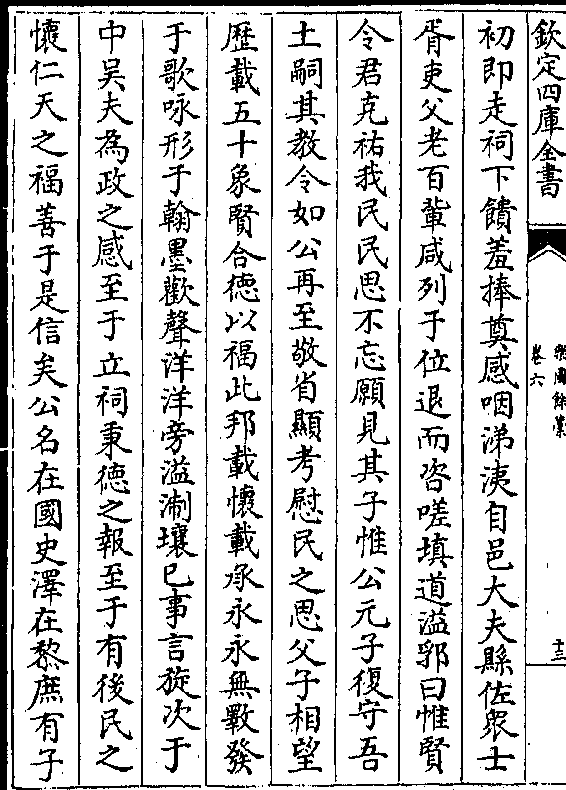 欽定四庫全書
樂圃餘藁
卷六
十三
初即走祠下饋羞捧奠感咽涕洟自邑大夫縣佐衆士
胥吏父老百輩咸列于位退而咨嗟填道溢郭曰惟賢
令君克祐我民民思不忘願見其子惟公元子復守吾
土嗣其教令如公再至敬省顯考慰民之思父子相望
歴載五十象賢合徳以福此邦載懷載承永永無斁發
于歌咏形于翰墨歡聲洋洋旁溢淛壤已事言旋次于
中吳夫為政之感至于立祠秉徳之報至于有後民之
懷仁天之福善于是信矣公名在國史澤在黎庶有子